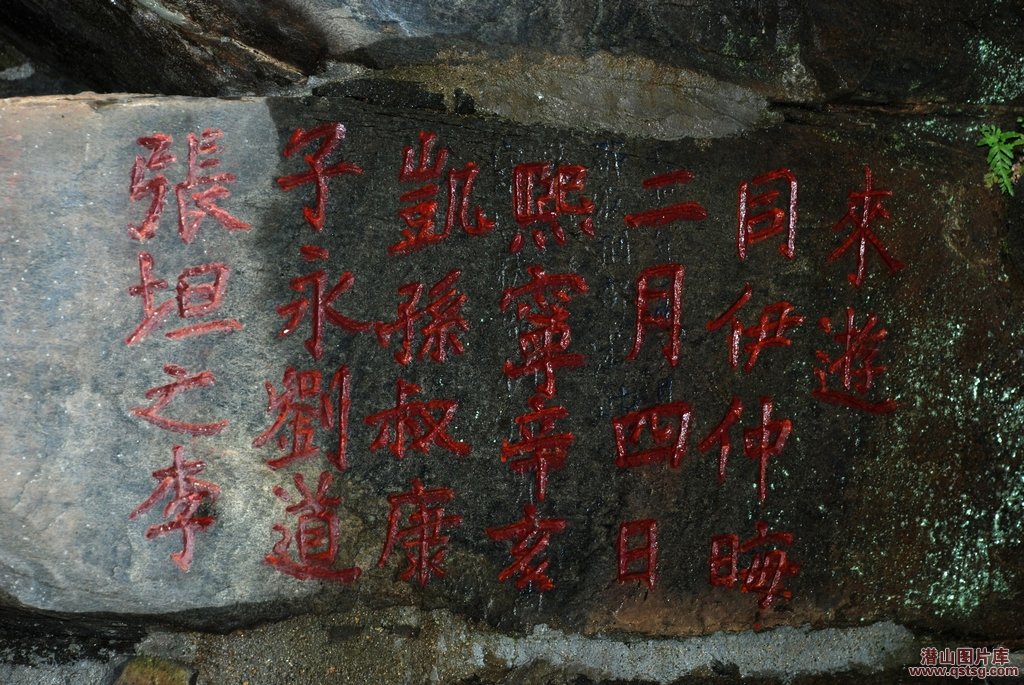 張坦之李
子永劉道
凱孫叔康
熙寧辛亥
二月四日
同伊仲晦
來遊
潜山图片库
www.qstsg.com